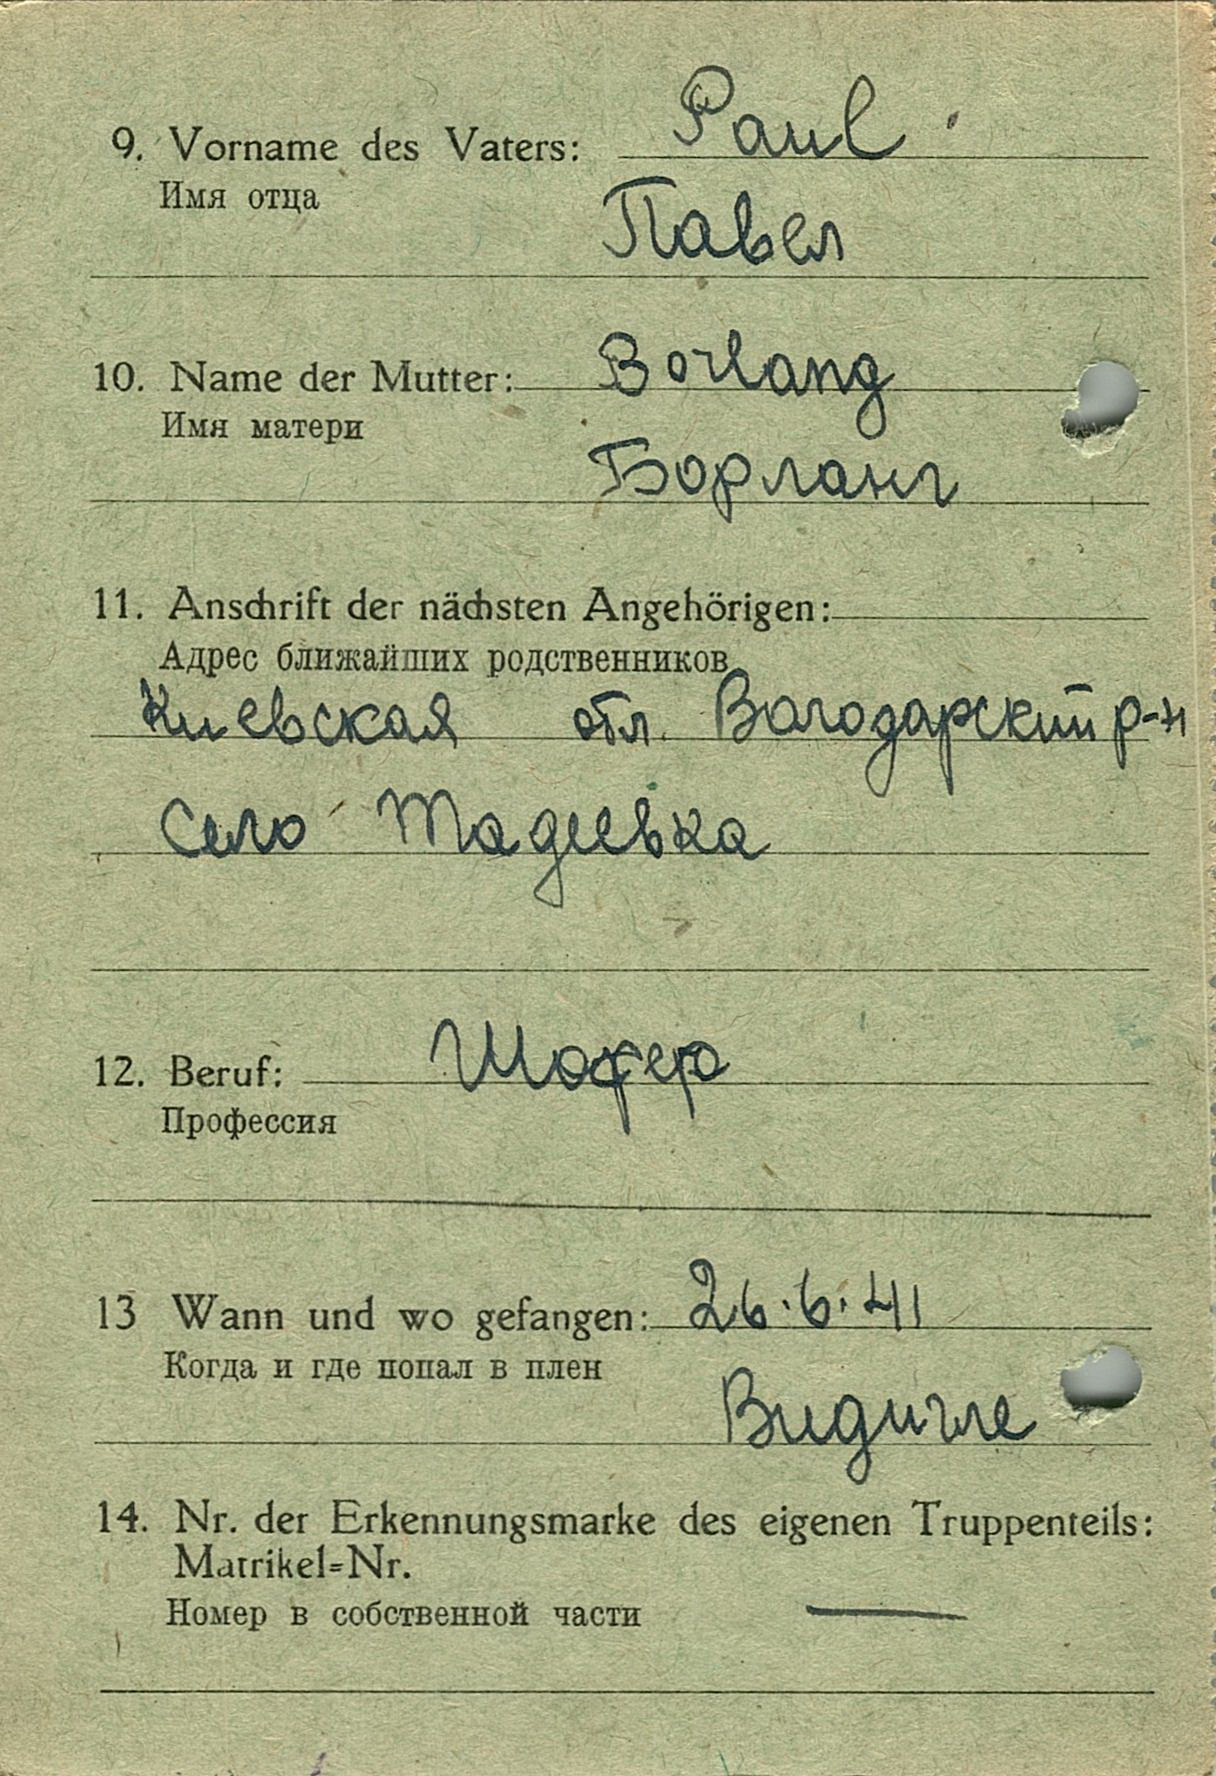 9. Vorname des Vaters: Paul
Имя отца
Павел
10. Name der Mutter: Borlang
Имя матери
Борланг
11. Anschrift der nächsten Angehörigen:
Адрес ближайших родственников
Киевская обл. Володарский р-н
Село Тадеевка
12. Beruf: Шофер
Профессия
13 Wann und wo gefangen: 26.6.41
Когда и где попал в плен
Видигле
14. Nr. der Erkennungsmarke des eigenen Truppenteils:
Matrikel=Nr.
Номер в собственной части —